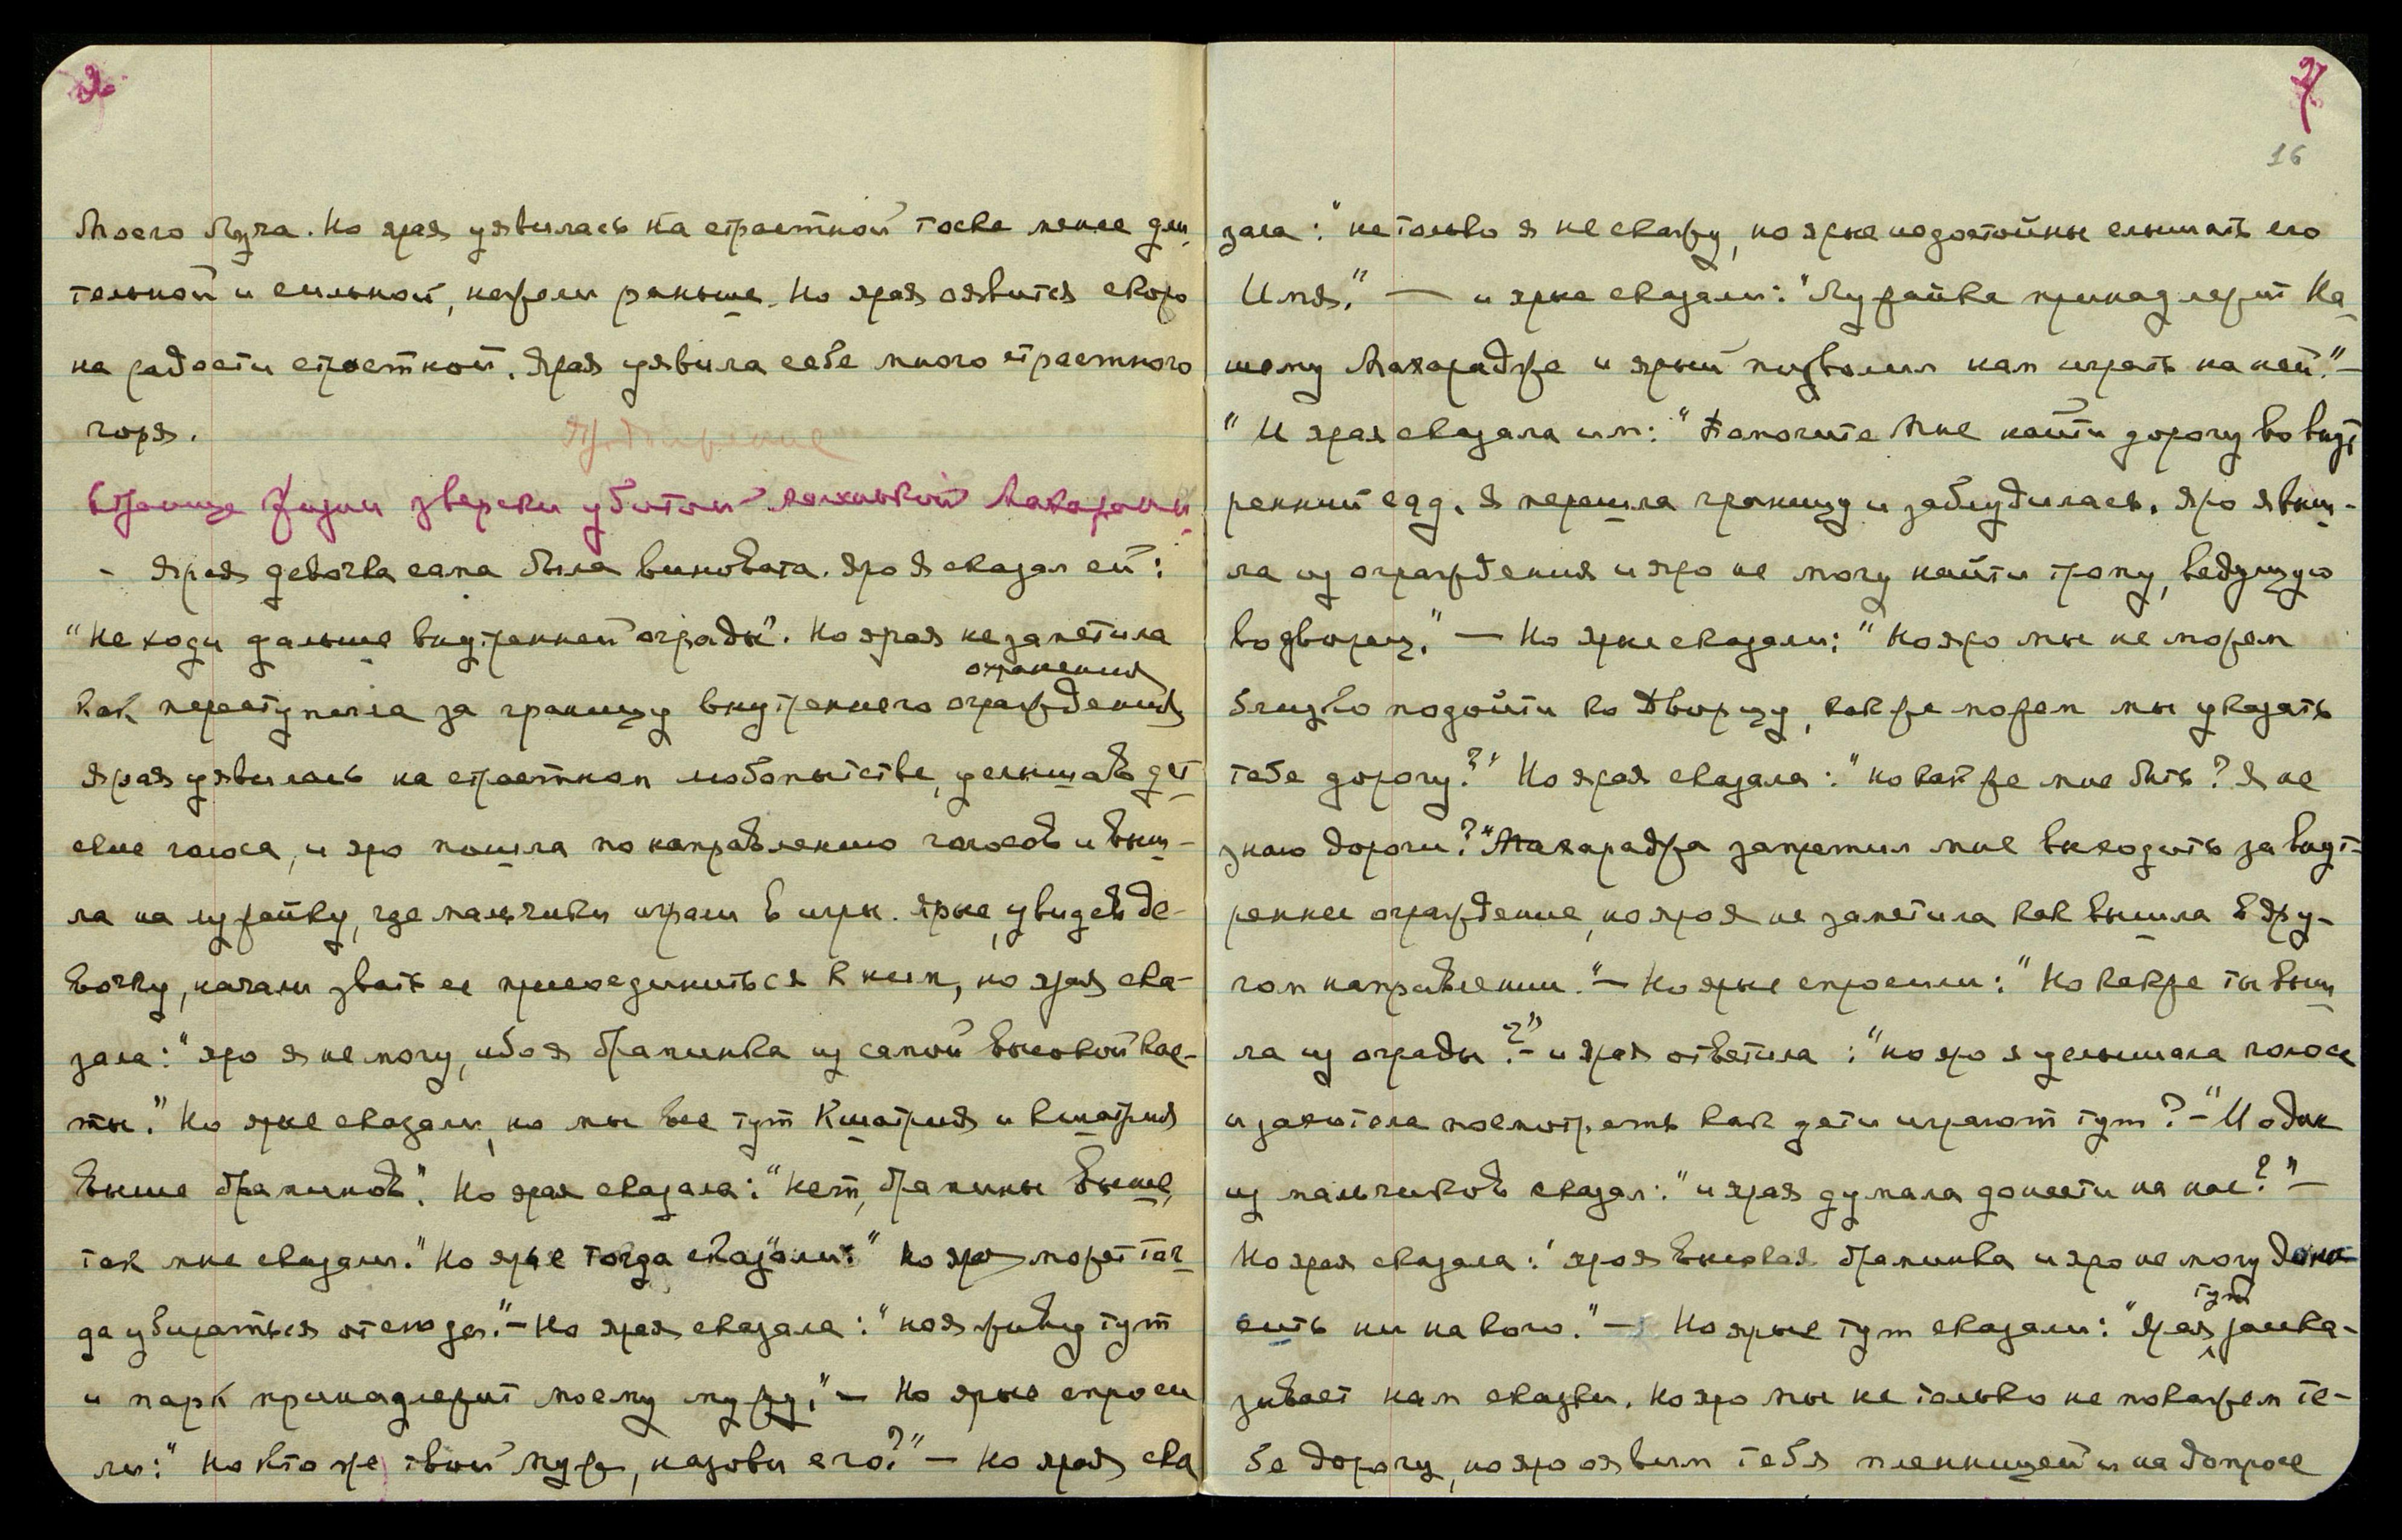 2
Моего Луча. Но ярая уявилась на страстной тоске менее дли
тельной и сильной, нежели раньше. Но ярая оявится скоро
на радости страстной. Ярая уявила себе много страстного
горя.
Страница жизни зверски убитой маленькой Махарани
- Ярая девочка сама была виновата. Яро Я сказал ей:
"Не ходи дальше внутренней ограды". Но ярая не заметила
охранения
как переступила за границу внутреннего ограждения
Ярая уявилась на страстном любопытстве, услышав дет
ские голоса, и яро пошла по направлению голосов и выш-
ла на лужайку, где мальчики играли в игры. Ярые, увидев де-
вочку, начали звать ее присоединиться к ним, но ярая ска-
зала: "яро я не могу, ибо я браминка из самой высокой кас-
ты." Но ярые сказали, но мы все тут Кшатрия и кшатрия
выше браминов". Но ярая сказала: "нет, брамины выше,
так мне сказали." Но ярые тогда сказали: "но яро может тог
да убираться отсюда." — Но ярая сказала: "но я живу тут
и парк принадлежит моему мужу." — Но ярые спроси
ли: "Но кто же твой муж, назови его?" — Но ярая ска
27
16
зала: "не только я не скажу, но ярые недостойны слышать его
Имя." — и ярые сказали: "Лужайка принадлежит На
шему Махарадже и ярый позволил нам играть на ней." —
"И ярая сказала им: "Помогите мне найти дорогу во внут
ренний сад. Я перешла границу и заблудилась. Яро я выш-
ла из ограждения и яро не могу найти тропу, ведущую
во дворец." — Но ярые сказали: "Но яро мы не можем
близко подойти ко Дворцу, как же можем мы указать
тебе дорогу?" Но ярая сказала: "но как же мне быть? Я не
знаю дороги? "Махараджа запретил мне выходить за внут-
реннее ограждение, но яро я не заметила как вышла в дру-
гом направлении." — Но ярые спросили: "Но как же ты выш
ла из ограды?" - и ярая ответила: "но яро я услышала голоса
и захотела посмотреть как дети играют тут? —" И один
из мальчиков сказал: "и ярая думала донести на нас?" —
Но ярая сказала: "яро я высокая браминка и яро не могу доно
сить ни на кого." — Но ярые тут сказали: "Ярая
тут
расска-
зывает нам сказки. Но яро мы не только не покажем те-
бе дорогу, но яро оявим тебя пленницей и на допросе